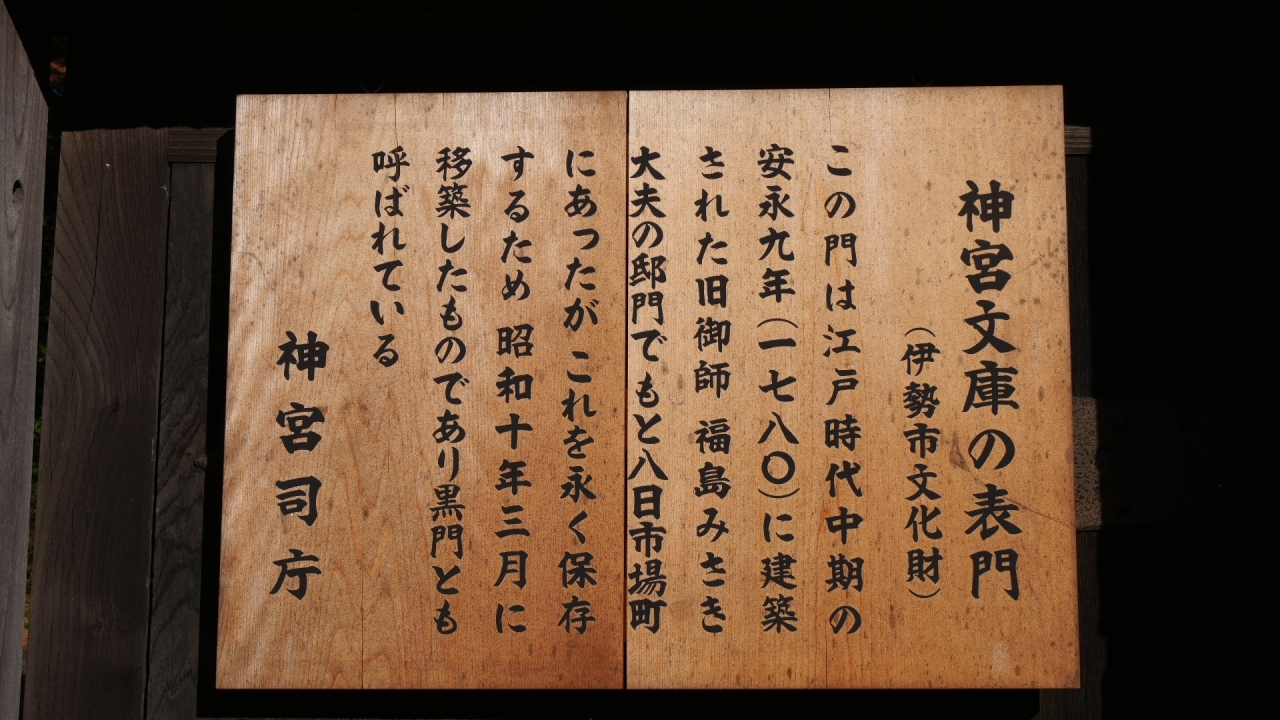 神宮文庫の表門
（伊勢市文化財）
この門は江戸時代中期の
安永九年（一七八〇）に建築
された旧御師 福島みさき
大夫の邸門でもと八日市場町
にあったが これを永く保存
するため 昭和十年三月に
移築したものであり黒門とも
呼ばれている
神宮司庁